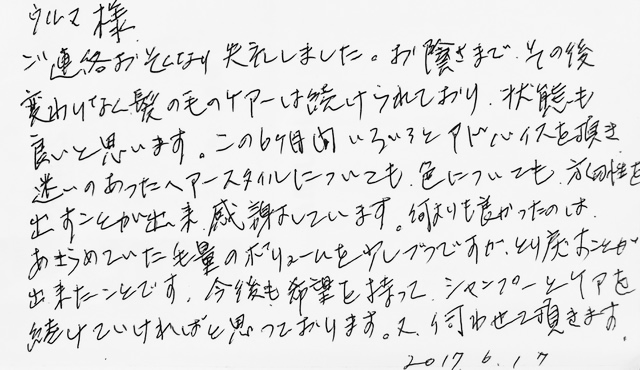 ウルマ 様
ご連絡おそくなり失礼しました。お陰さまで、その後
変わりなく髪の毛のケアーは続けられており、状態も
良いと思います。この6ヶ月間いろいろとアドバイスを頂き
迷いのあったヘアースタイルについても、色についても、方向性を
出すことが出来、感謝しています。何よりも良かったのは、
あきらめていた毛量のボリュームを少しづつですが、とり戻すことが
出来たことです。今後も希望を持って、シャンプーとケアを
続けていければと思っております。又、伺わせて頂きます。
2017.6.17